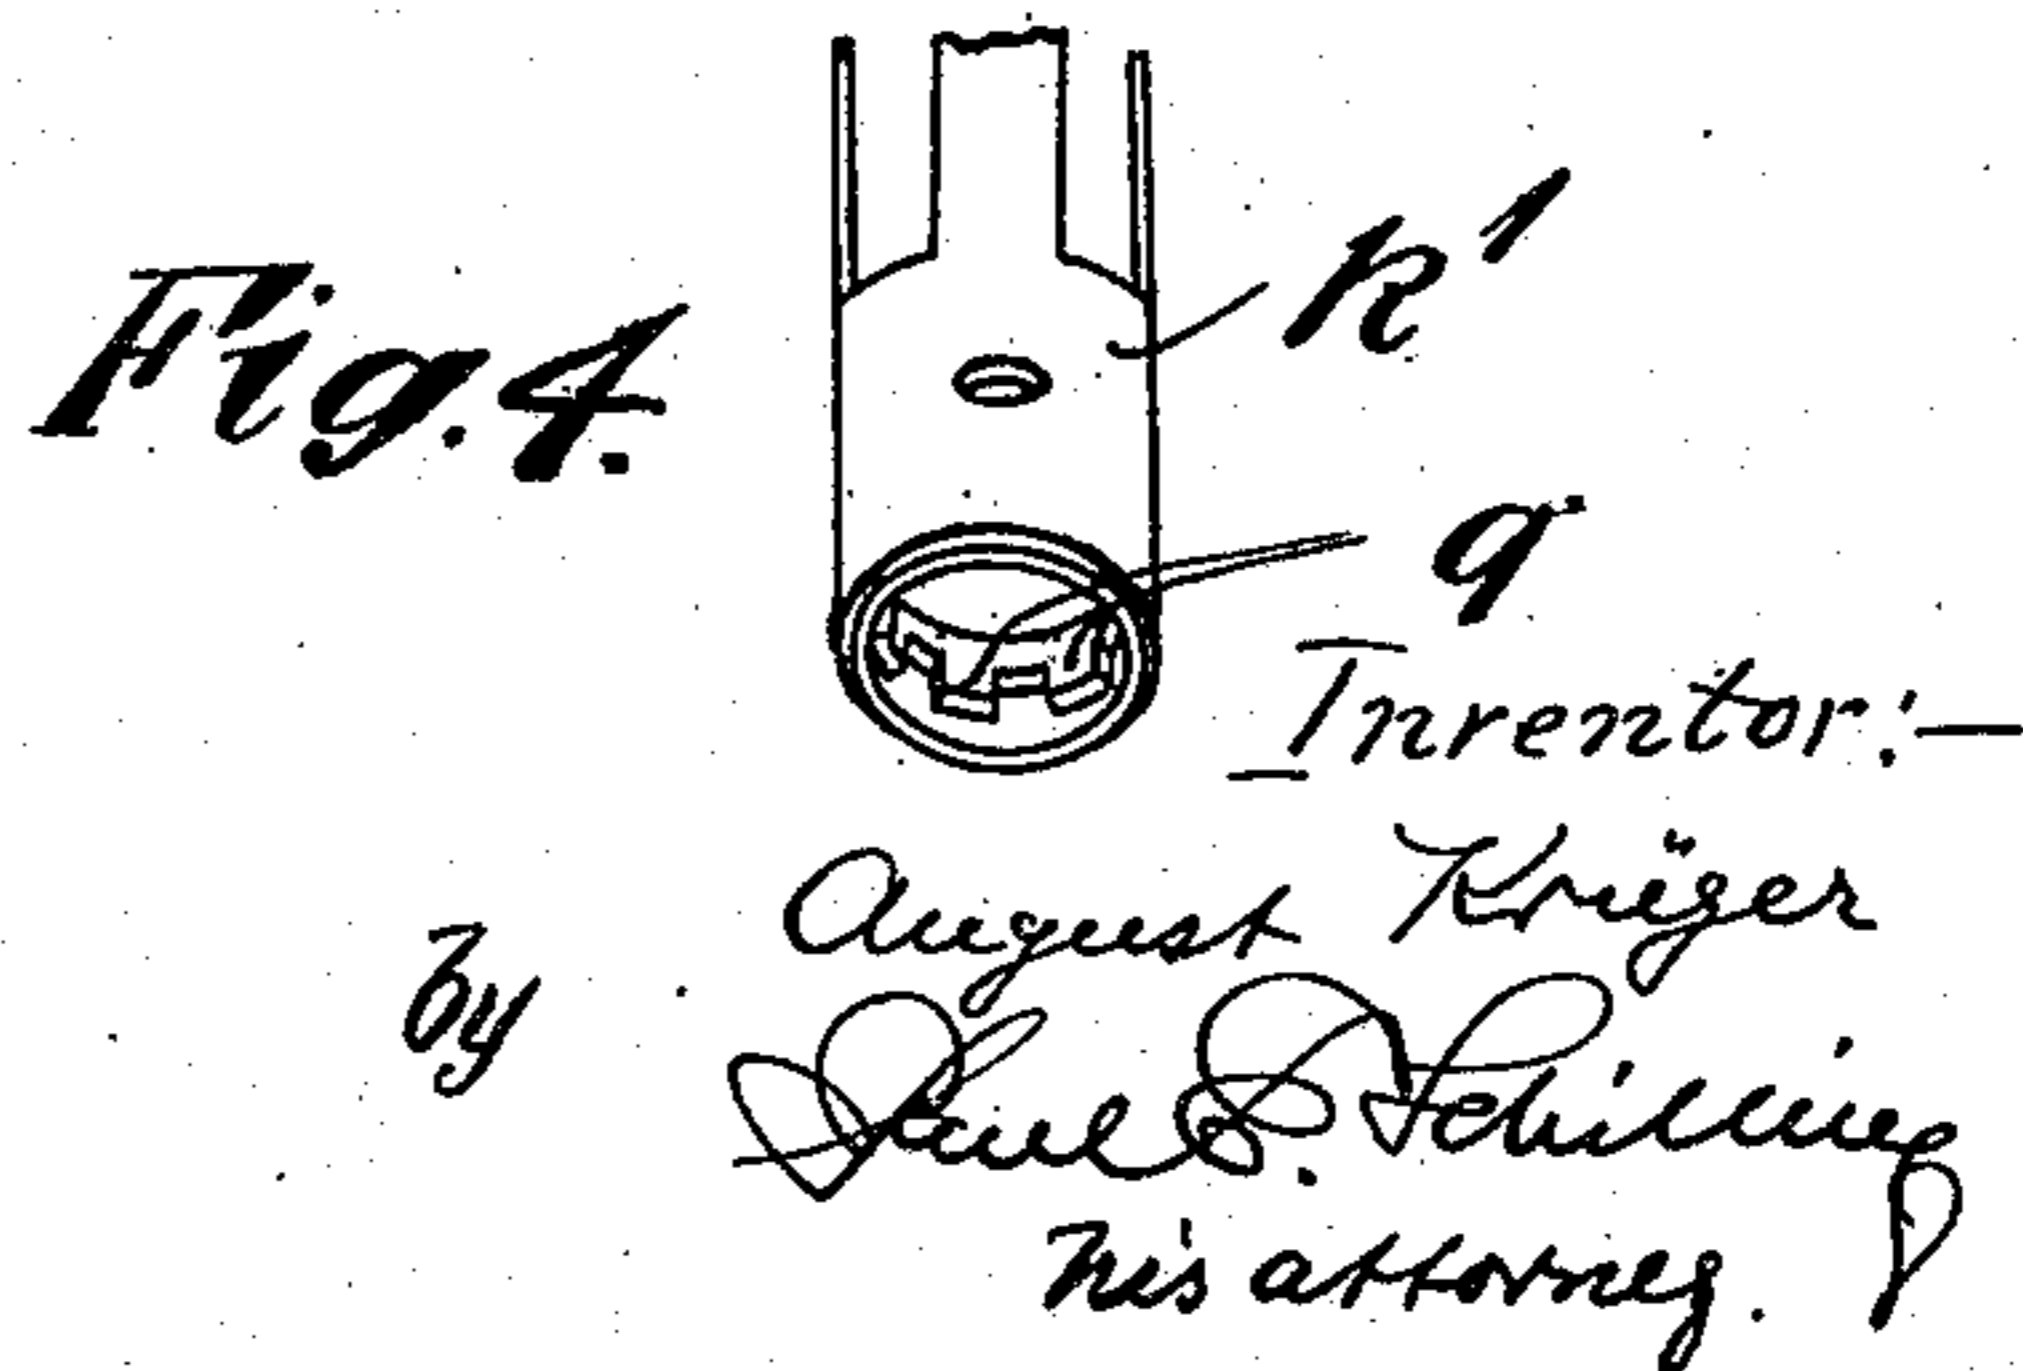 Fig. 4.
k¹
q
Inventor:—
August Krüger
by Paul E. Schilling
his attorney.